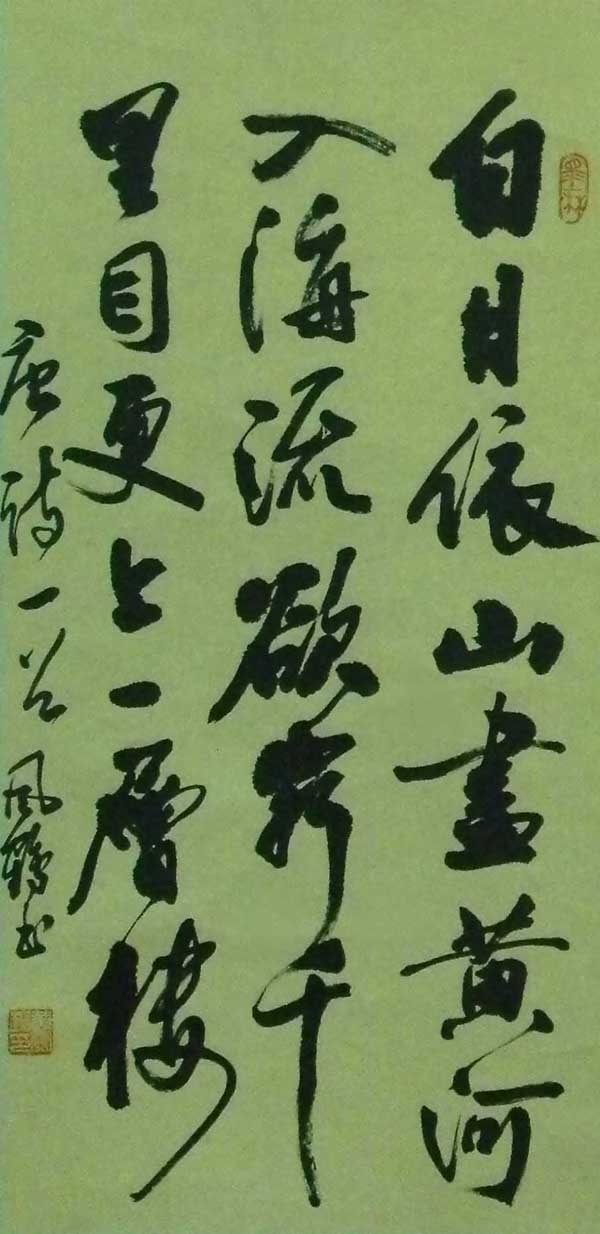 白日依山盡黄河
入海流欲窮千
里目更上一層樓
唐詩一首 風鶴书